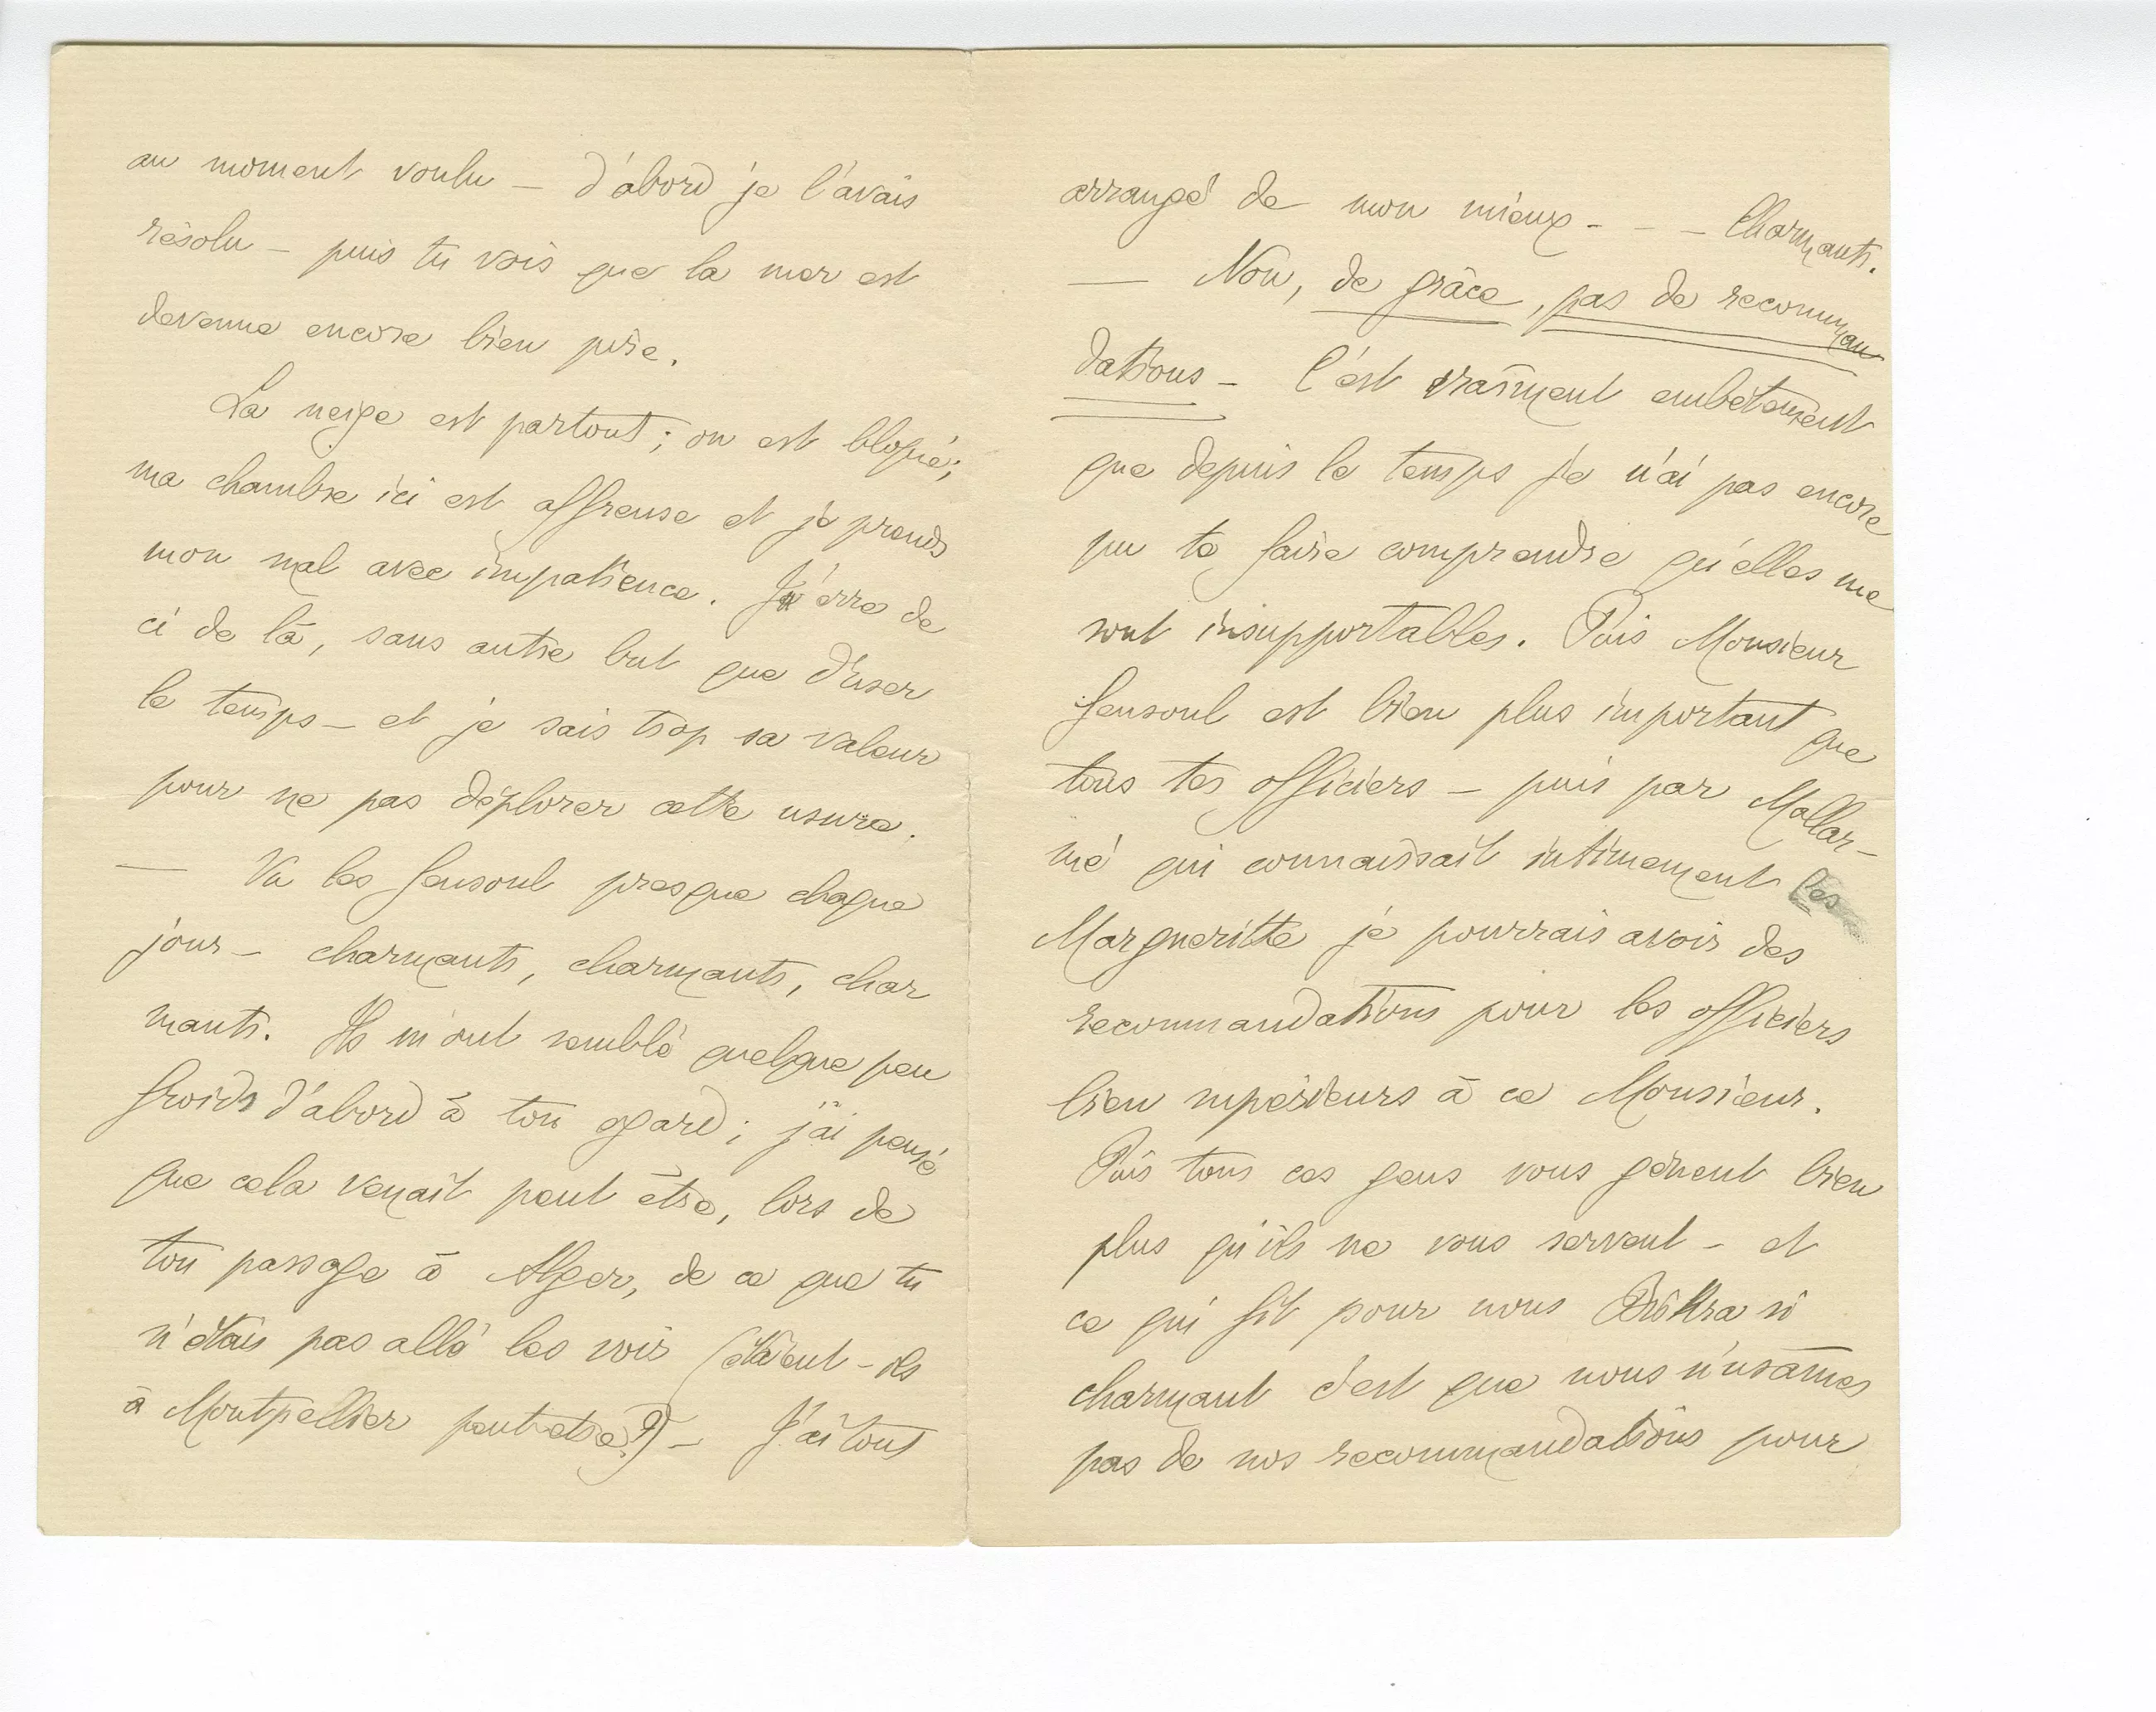 au moment voulu – d'abord je l'avais
résolu – puis tu vois que la mer est
devenue encore bien pire.
La neige est partout ; on est bloqué ;
ma chambre ici est affreuse et je prends
mon mal avec impatience. J'erre de
ci de là, sans autre but que d'user
le temps – et je sais trop sa valeur
pour ne pas déplorer cette usure.
— Vu les Fensoul presque chaque
jour – charmants, charmants, char
mants. Ils m'ont semblé quelque peu
froids d'abord à ton égard ; j'ai pensé
que cela venait peut être, lors de
ton passage à Alger, de ce que tu
n'étais pas allé les voir (étaient-ils
à Montpellier peut etre?) – J'ai tout
arrangé de mon mieux - - - Charmants.
— Non, de grâce, pas de recomman
dations – C'est vraiment embêtement
que depuis le temps je n'ai pas encore
pu te faire comprendre qu'elles me
sont insupportables. Puis Monsieur
Fensoul est bien plus important que
tous tes officiers – puis par Mallar-
mé qui connaissait intimement les
Margueritte je pourrais avoir des
recommandations pour les officiers
bien supérieurs à ce Monsieur.
Puis tous ces gens vous gênent bien
plus qu'ils ne vous servent – et
ce qui fit pour nous Biskra si
charmant c'est que nous n'usâmes
pas de nos recommandations pour